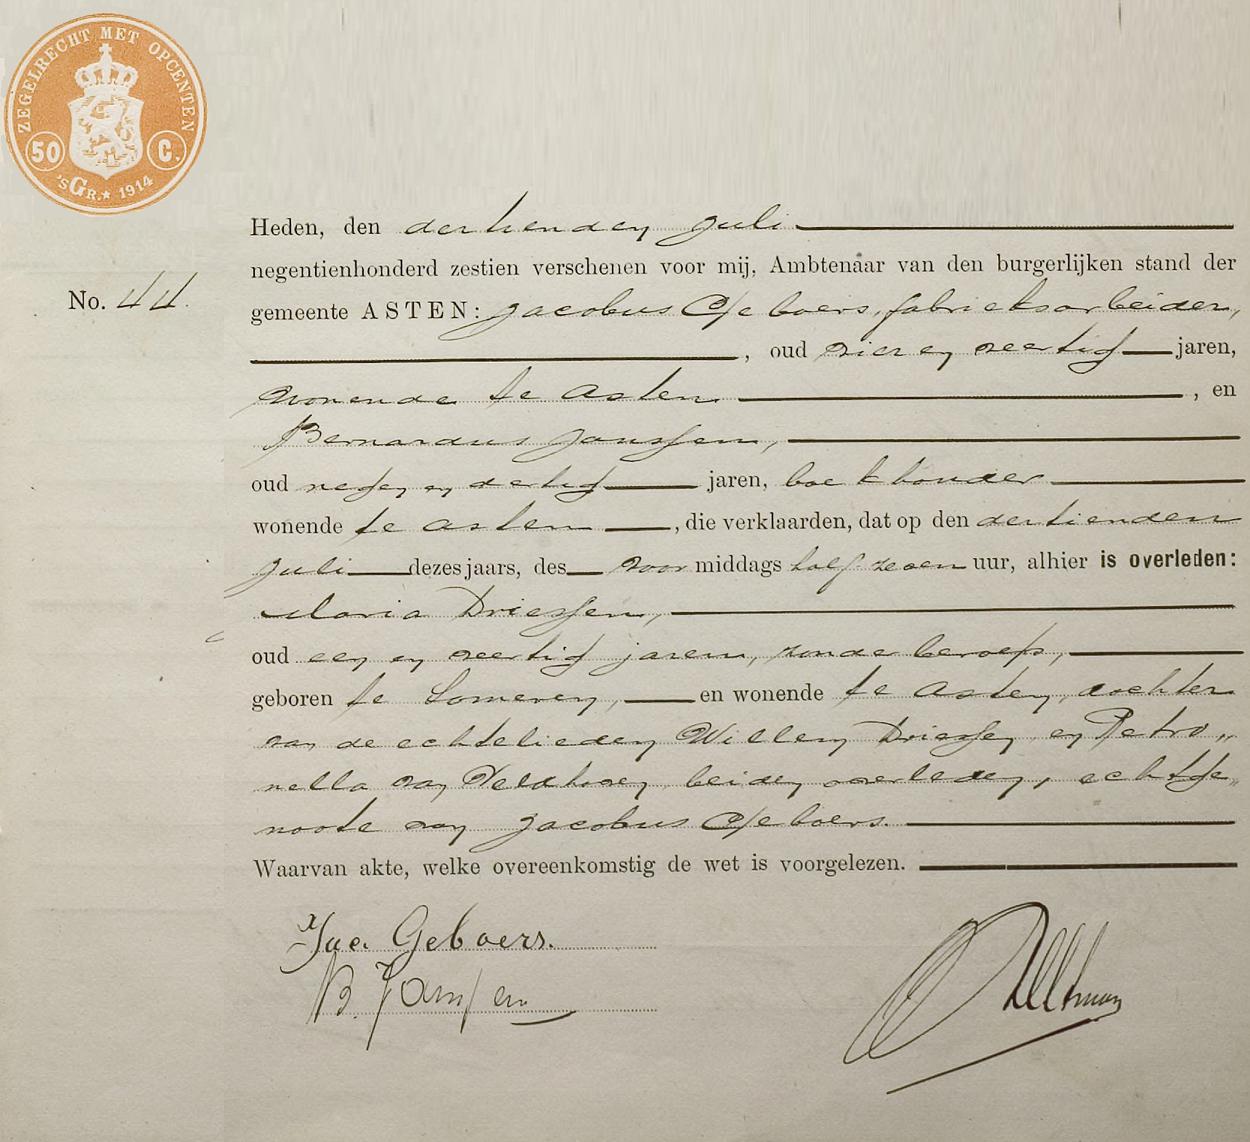 ZEGELRECHT MET OPCENTEN
50 C.
'SGR.★ 1914
Heden, den dertienden Juli
negentienhonderd zestien verschenen voor mij, Ambtenaar van den burgerlijken stand der
No. 44.
gemeente ASTEN: Jacobus Geboers, fabrieksarbeider,
, oud vier en veertig jaren,
wonende te Asten , en
Bernardus Janssen,
oud negen en dertig jaren, boekhouder
wonende te Asten , die verklaarden, dat op den dertienden
Juli dezes jaars, des voor middags half zeven uur, alhier is overleden:
Maria Driessen,
oud een en veertig jaren, zonder beroep,
geboren te Someren, en wonende te Asten, dochter
van de echtelieden Willem Driessen en Petro„
nella van Veldhoven, beiden overleden, echtge„
noote van Jacobus Geboers.
Waarvan akte, welke overeenkomstig de wet is voorgelezen.
Jac. Geboers.
B. Janssen